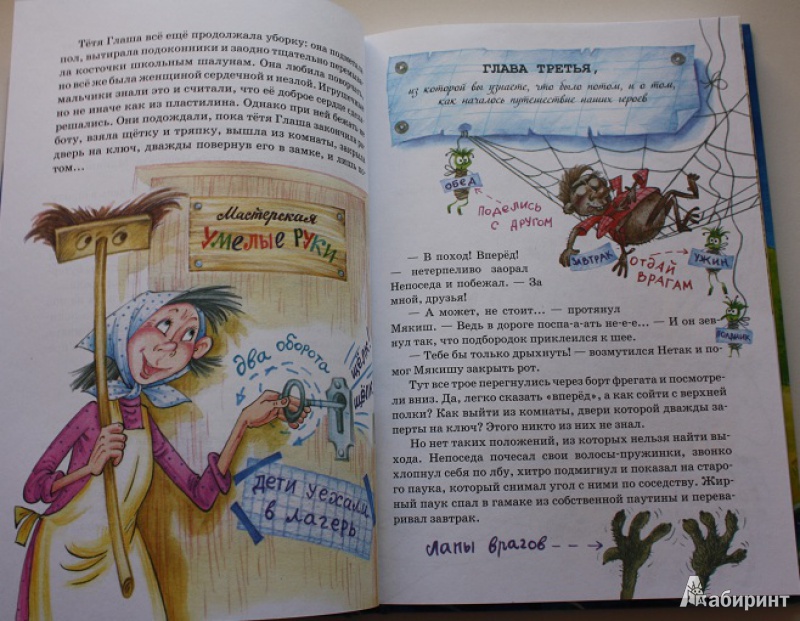 Тётя Глаша всё ещё продолжала уборку: она подметала
пол, вытирала подоконники и заодно тщательно перемыва-
ла косточки школьным шалунам. Она любила поворчать,
но всё же была женщиной сердечной и незлой. Игрушечные
мальчики знали это и считали, что её доброе сердце
но не иначе как из пластилина. Однако при ней бежать не
решались. Они подождали, пока тётя Глаша закончила ра-
боту, взяла щётку и тряпку, вышла из комнаты, закрыла
дверь на ключ, дважды повернув его в замке, и лишь по-
том...
Мастерская
УМЕЛЫЕ РУКИ
два оборота
щёлк!
щёлк
дети уехали
в лагерь
ГЛАВА ТРЕТЬЯ,
из которой вы узнаете, что было потом, и о том,
как началось путешествие наших героев
ОБЕД
ПОДЕЛИСЬ
С ДРУГОМ
ЗАВТРАК
ОТДАЙ
ВРАГАМ
УЖИН
ПОЛДНИК
— В поход! Вперёд!
— нетерпеливо заорал
Непоседа и побежал. — За
мной, друзья!
— А может, не стоит... — протянул
Мякиш. — Ведь в дороге поспа-а-ать не-е-е... — И он зев-
нул так, что подбородок приклеился к шее.
— Тебе бы только дрыхнуть! — возмутился Нетак и по-
мог Мякишу закрыть рот.
Тут все трое перегнулись через борт фрегата и посмотре-
ли вниз. Да, легко сказать «вперёд», а как сойти с верхней
полки? Как выйти из комнаты, двери которой дважды за-
перты на ключ? Этого никто из них не знал.
Но нет таких положений, из которых нельзя найти вы-
хода. Непоседа почесал свои волосы-пружинки, звонко
хлопнул себя по лбу, хитро подмигнул и показал на старо-
го паука, который снимал угол с ними по соседству. Жир-
ный паук спал в гамаке из собственной паутины и перева-
ривал завтрак.
лапы врагов
Лабиринт